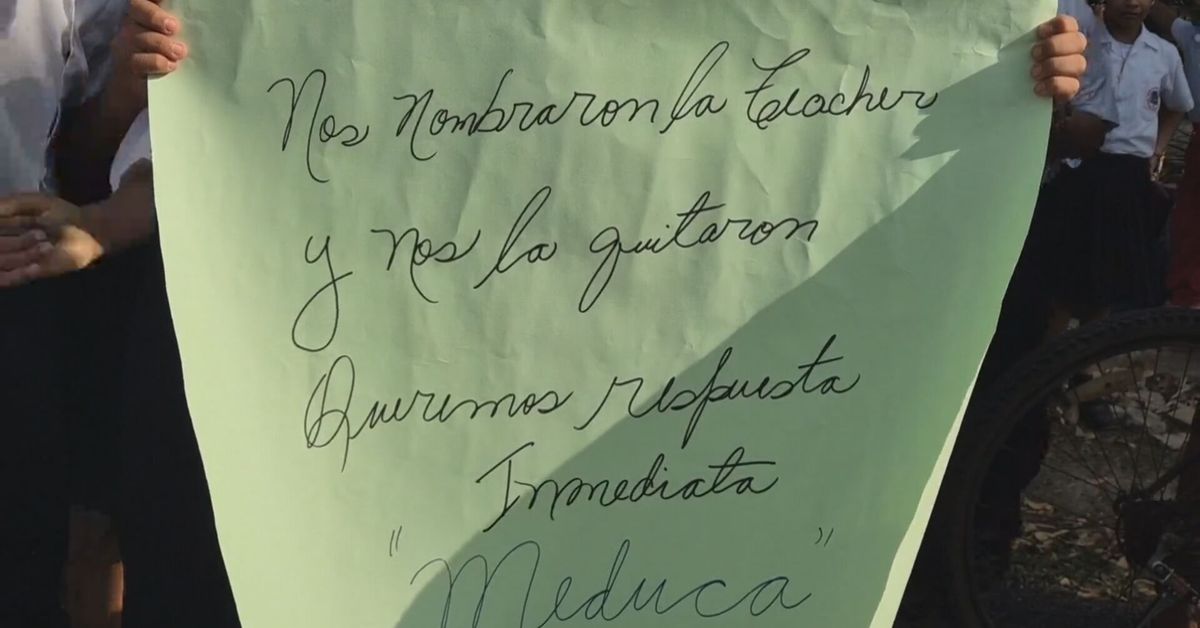 Nos Nombraron la teacher
y nos la quitaron
Queremos respuesta
Inmediata
"Meduca"